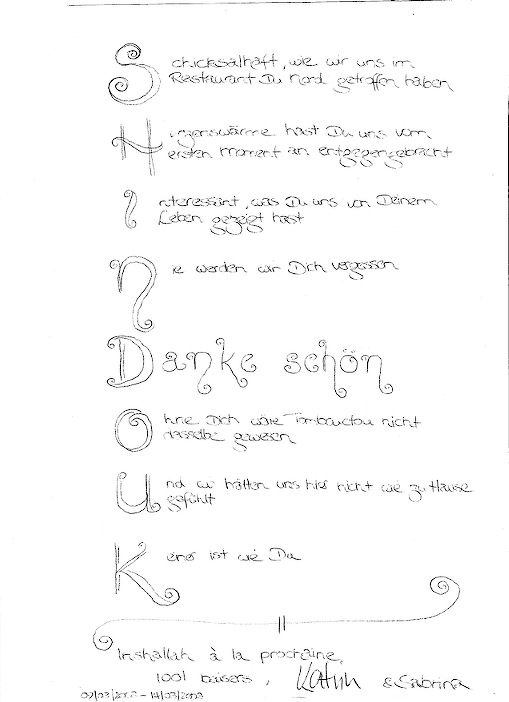 Schicksalhaft, wie wir uns im
Restaurant Du Nord getroffen haben
Herzenswärme hast Du uns vom
ersten Moment an entgegengebracht
Interessant, was Du uns von Deinem
Leben gezeigt hast
Nie werden wir Dich vergessen
Danke schön
Ohne Dich wäre Tombouctou nicht
dasselbe gewesen
Und wir hätten uns hier nicht wie zu Hause
gefühlt
Keiner ist wie Du
Inshallah à la prochaine,
1001 baisers, Katrin & Sabrina